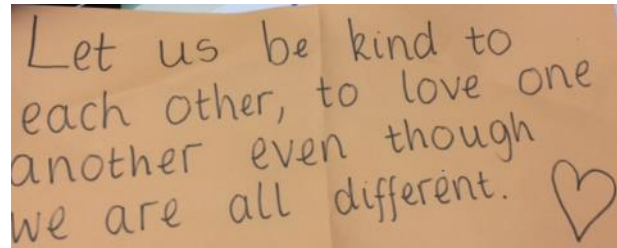 Let us be kind to
each other, to love one
another even though
we are all different.